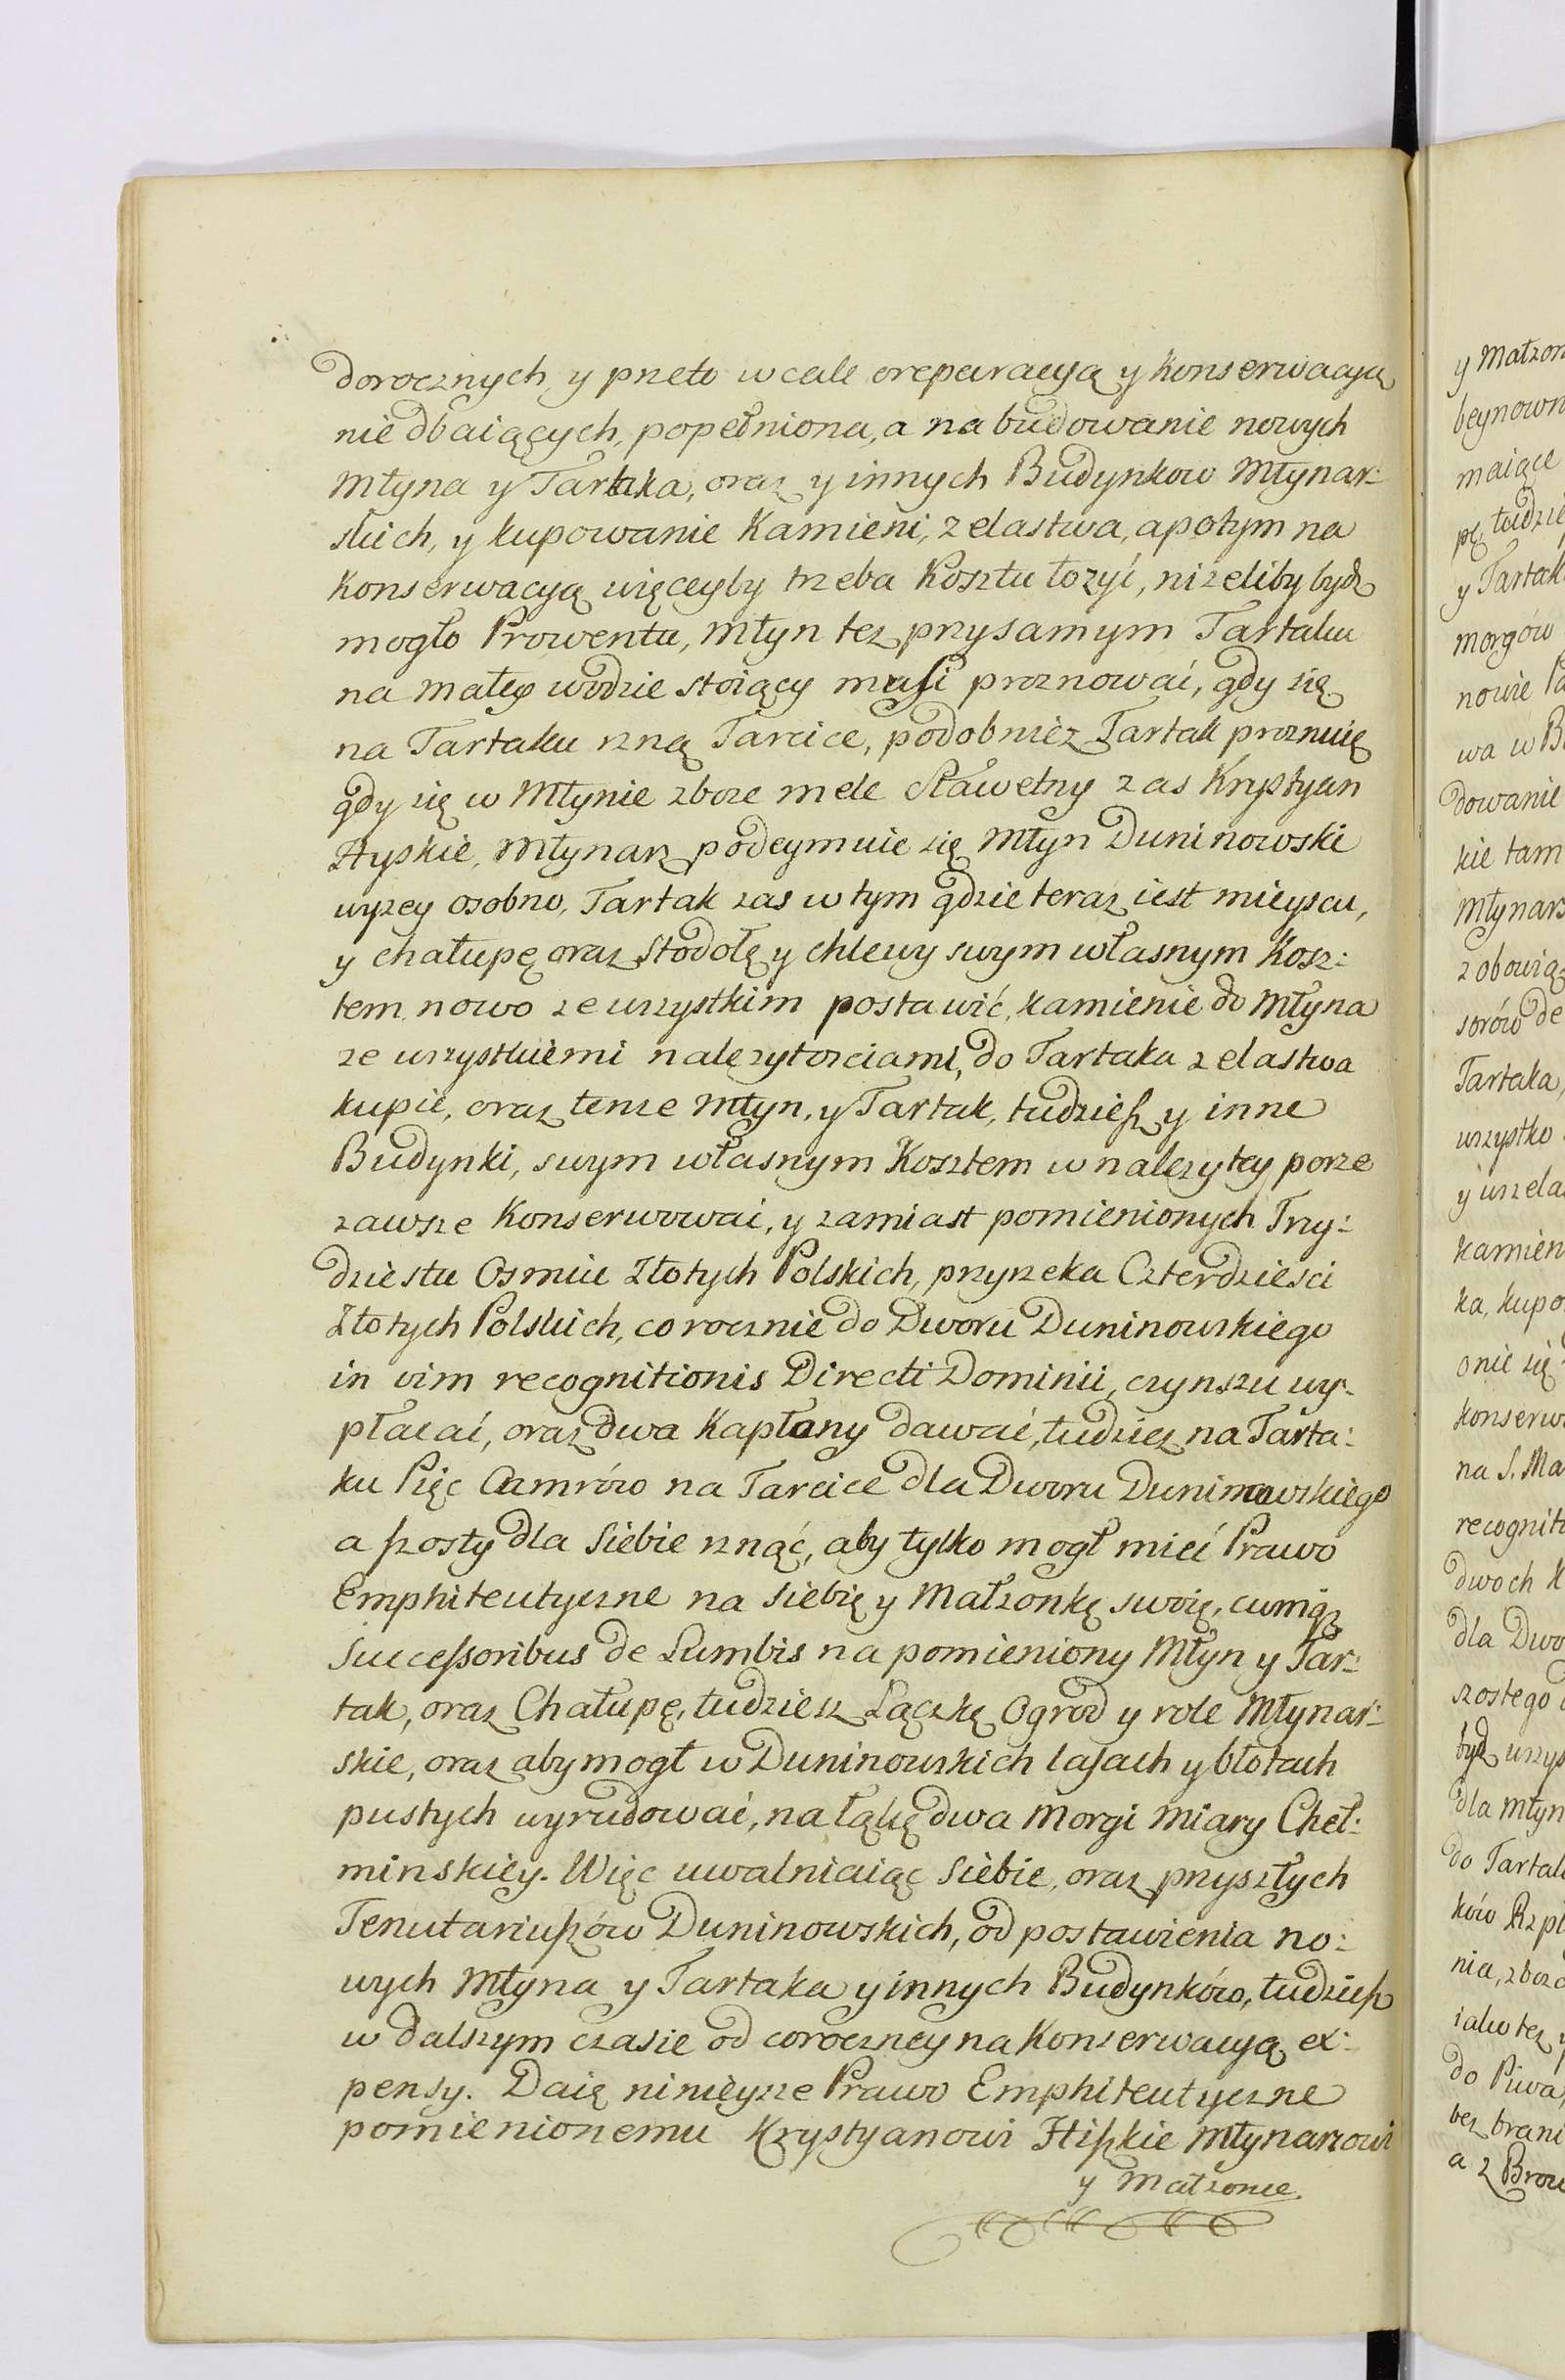 dorocznych, y przeto wcale oreparacyą y konserwacyą
nie dbaiących, popełniona, a na budowanie nowych
Młyna y Tartaka, oraz y innych Budynkow Młynar:
skich, y kupowanie Kamieni, zelastwa, apotym na
konserwacyą więceyby trzeba Kosztu łozyć, nizeliby bydz
mogło Prowentu, Młyn tez przysamym Tartaku
na małey wodzie stoiący musi proznować, gdy się
na Tartaku rzną Tarcice, podobniez Tartak prozmuię
gdy się w Młynie zboze mele Sławetny zas Krystyan
Hyskie, Młynarz podeymuie się Młyn Duninowski
wyzey osobno, Tartak zas w tym gdzie teraz iest mieyscu,
y chałupę oraz Stodołę y chlewy swym własnym Kosz:
tem nowo ze wszystkim postawić, kamienie do Młyna
ze wszystkiemi nalezytosciami, do Tartaka zelastwa
kupić, oraz tenze Młyn, y Tartak, tudziesz y inne
Budynki, swym własnym Kosztem w nalezytey porze
zawsze Konserwować, y zamiast pomienionych Trzy:
dziestu Osmiu Złotych Polskich, przyrzeka Czterdziesci
Złotych Polskich, corocznie do Dworu Duninowskiego
in vim recognitionis Directi Dominii, czynszu wy:
płacać, oraz dwa Kapłony dawać, tudziez na Tarta:
ku Pięc Camrów na Tarcice dla Dworu Duninowskiego
a szosty dla Siebie rznąć, aby tylko mogł mieć Prawo
Emphiteutyczne na Siebię y Małzonkę swoię, cumqz
Successoribus de Lumbis na pomieniony Młyn y Tar:
tak, oraz Chałupę, tudziesz Łączkę Ogrod y role Młynar:
skie, oraz aby mogł w Duninowskich lasach y błotach
pustych wyrudować, na łąkę dwa Morgi Miary Cheł:
minskiey. Więc uwalniaiąc Siebie, oraz przyszłych
Tenutariuszów Duninowskich, od postawienia no:
wych Młyna y Tartaka y innych Budynków, tudziesz
w dalszym czasie od coroczney na Konserwacyą ex:
pensy. Daię ninieysze Prawo Emphiteutyczne
pomienionemu Krystyanowi Hiszkie Młynarzowi
y Małzonce
y Małzon
beynown
maiące
pę, tudzie
y Tartak
morgów
nowie Pa
wa w B
dowanie
kie tam
Młynars
zobowią
sorów de
Tartaka,
wszystko
y wszela
kamien
ka, kupo
onie się
konserw
na S. Ma
recogniti
dwoch K
dla Dwo
szostego
bydz wszys
dla Młyn
do Tartak
ków Rzpl
nia, zboz
iako tez
do Piwa,
bez brani
a z Brow